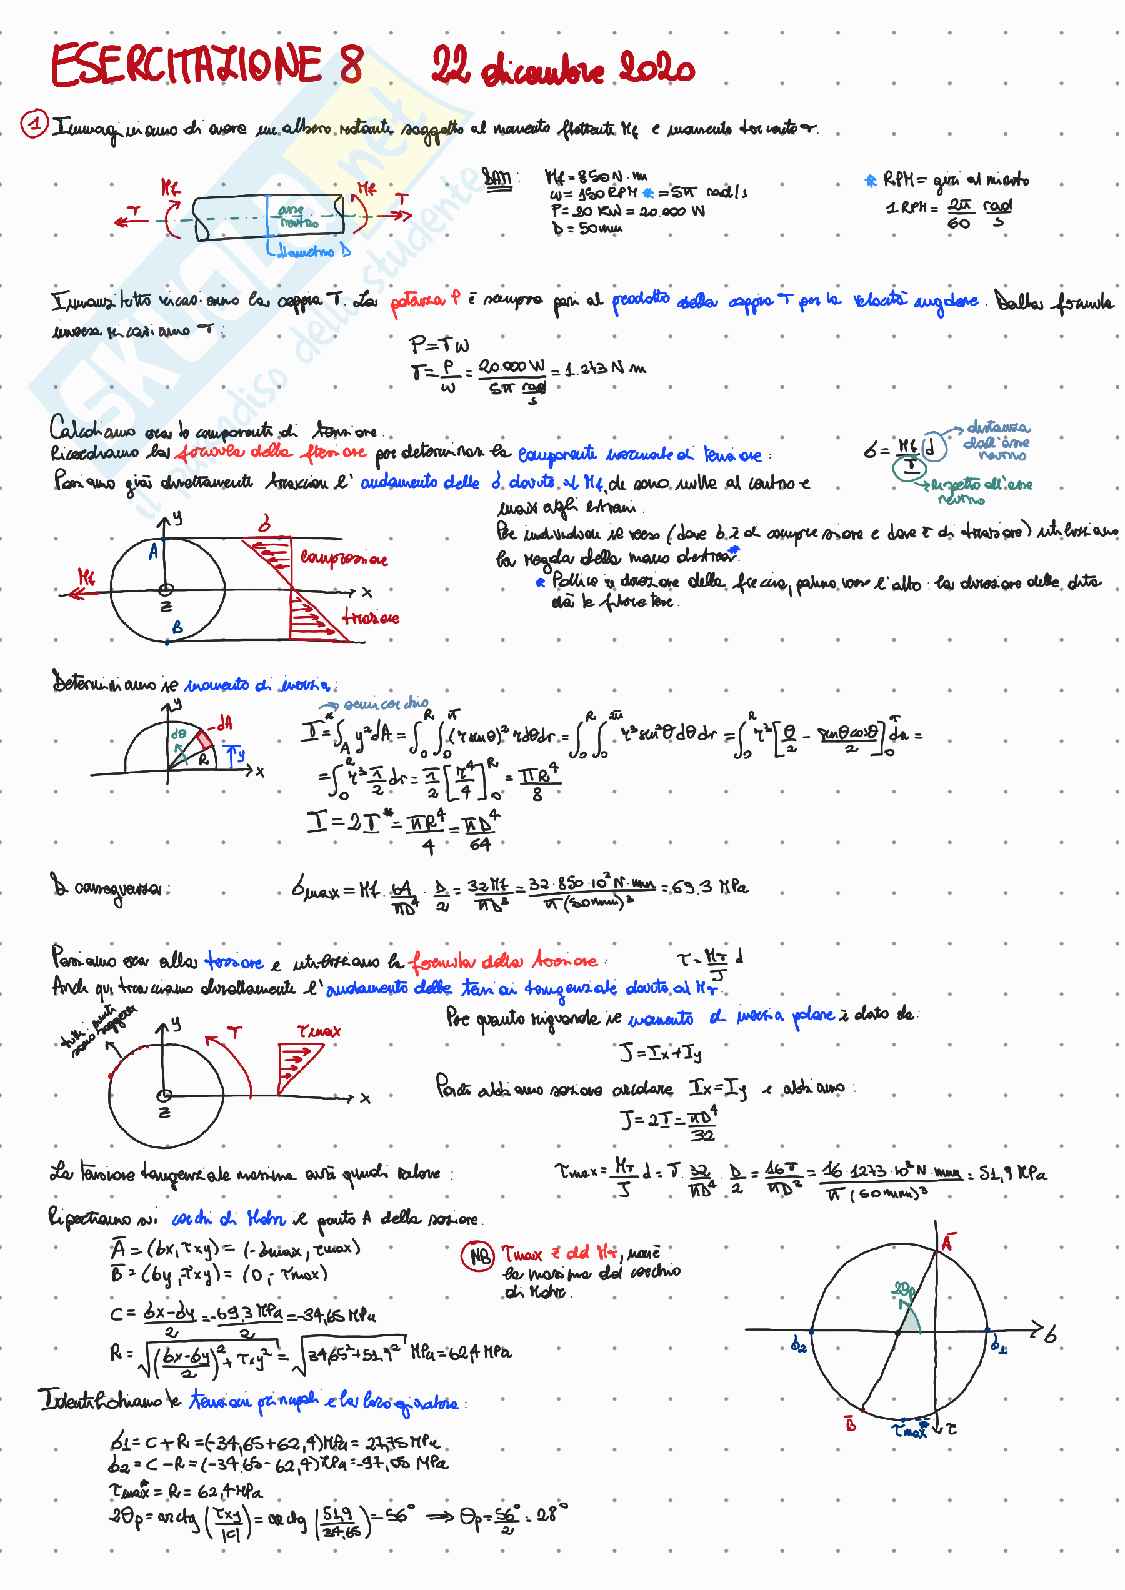 ESERCITAZIONE 8 22 dicembre 2020
① Immaginiamo di avere un albero rotante soggetto al momento flettente Mf e momento torcente T.
DATI: Mf = 850 N·m
ω = 150 RPM * = 5π rad/s
P = 20 KW = 20.000 W
D = 50 mm
* RPM = giri al minuto
1 RPM = 2π/60 rad/s
T Mf Mf T
asse neutro
diametro D
Innanzitutto ricaviamo la coppia T. La potenza P è sempre pari al prodotto della coppia T per la velocità angolare. Dalla formula
inversa ricaviamo T:
P = Tω
T = P/ω = 20.000 W / 5π rad/s = 1.273 N m
Calcoliamo ora le componenti di tensione.
Ricordiamo la formula della flessione per determinare la componente normale di tensione:
σ = Mf/I d
distanza dall'asse neutro
rispetto all'asse neutro
Possiamo già direttamente tracciare l'andamento delle σ dovute al Mf, che sono nulle al centro e
max agli estremi.
Per individuare il verso (dove σ è di compressione e dove è di trazione) utilizziamo
la regola della mano destra*
* Pollice in direzione della freccia, palmo verso l'alto la direzione delle dita
dà le fibre tese.
y A Mf z x B σ compressione trazione
Determiniamo il momento di inerzia:
semicerchio
y dA dθ R y x
I* = ∫A y² dA = ∫0^R ∫0^π (r senθ)² r dθ dr = ∫0^R ∫0^π r³ sen²θ dθ dr = ∫0^R r³ [θ/2 - senθcosθ/2]0^π dr =
= ∫0^R r³ π/2 dr = π/2 [r⁴/4]0^R = πR⁴/8
I = 2I* = πR⁴/4 = πD⁴/64
Di conseguenza: σmax = Mf · 64/πD⁴ · D/2 = 32Mf/πD³ = 32·850·10³ N·mm / π(50mm)³ = 69,3 MPa
Passiamo ora alla torsione e utilizziamo la formula della torsione: τ = MT/J d
Anche qui tracciamo direttamente l'andamento delle tensioni tangenziale dovute al MT.
tutti i punti sono soggetti
y T τmax z x
Per quanto riguarda il momento di inerzia polare è dato da:
J = Ix + Iy
Poiché abbiamo sezione circolare Ix = Iy e abbiamo:
J = 2I = πD⁴/32
La tensione tangenziale massima avrà quindi valore: τmax = MT/J d = T · 32/πD⁴ · D/2 = 16T/πD³ = 16·1273·10³ N·mm / π(50mm)³ = 51,9 MPa
Riportiamo sui cerchi di Mohr il punto A della sezione.
A = (σx, τxy) = (-σmax, τmax)
B = (σy, -τxy) = (0, -τmax)
C = σx-σy/2 = -69,3 MPa/2 = -34,65 MPa
R = √((σx-σy/2)² + τxy²) = √(34,65² + 51,9²) MPa = 62,4 MPa
NB τmax è del MT, non è
la massima del cerchio
di Mohr.
A 2θp σ2 σ1 σ B τmax* τ
Identifichiamo le tensioni principali e la loro giacitura:
σ1 = C + R = (-34,65 + 62,4) MPa = 27,75 MPa
σ2 = C - R = (-34,65 - 62,4) MPa = -97,05 MPa
τmax* = R = 62,4 MPa
2θp = arctg(τxy/|C|) = arctg(51,9/34,65) = 56° ⟹ θp = 56°/2 = 28°